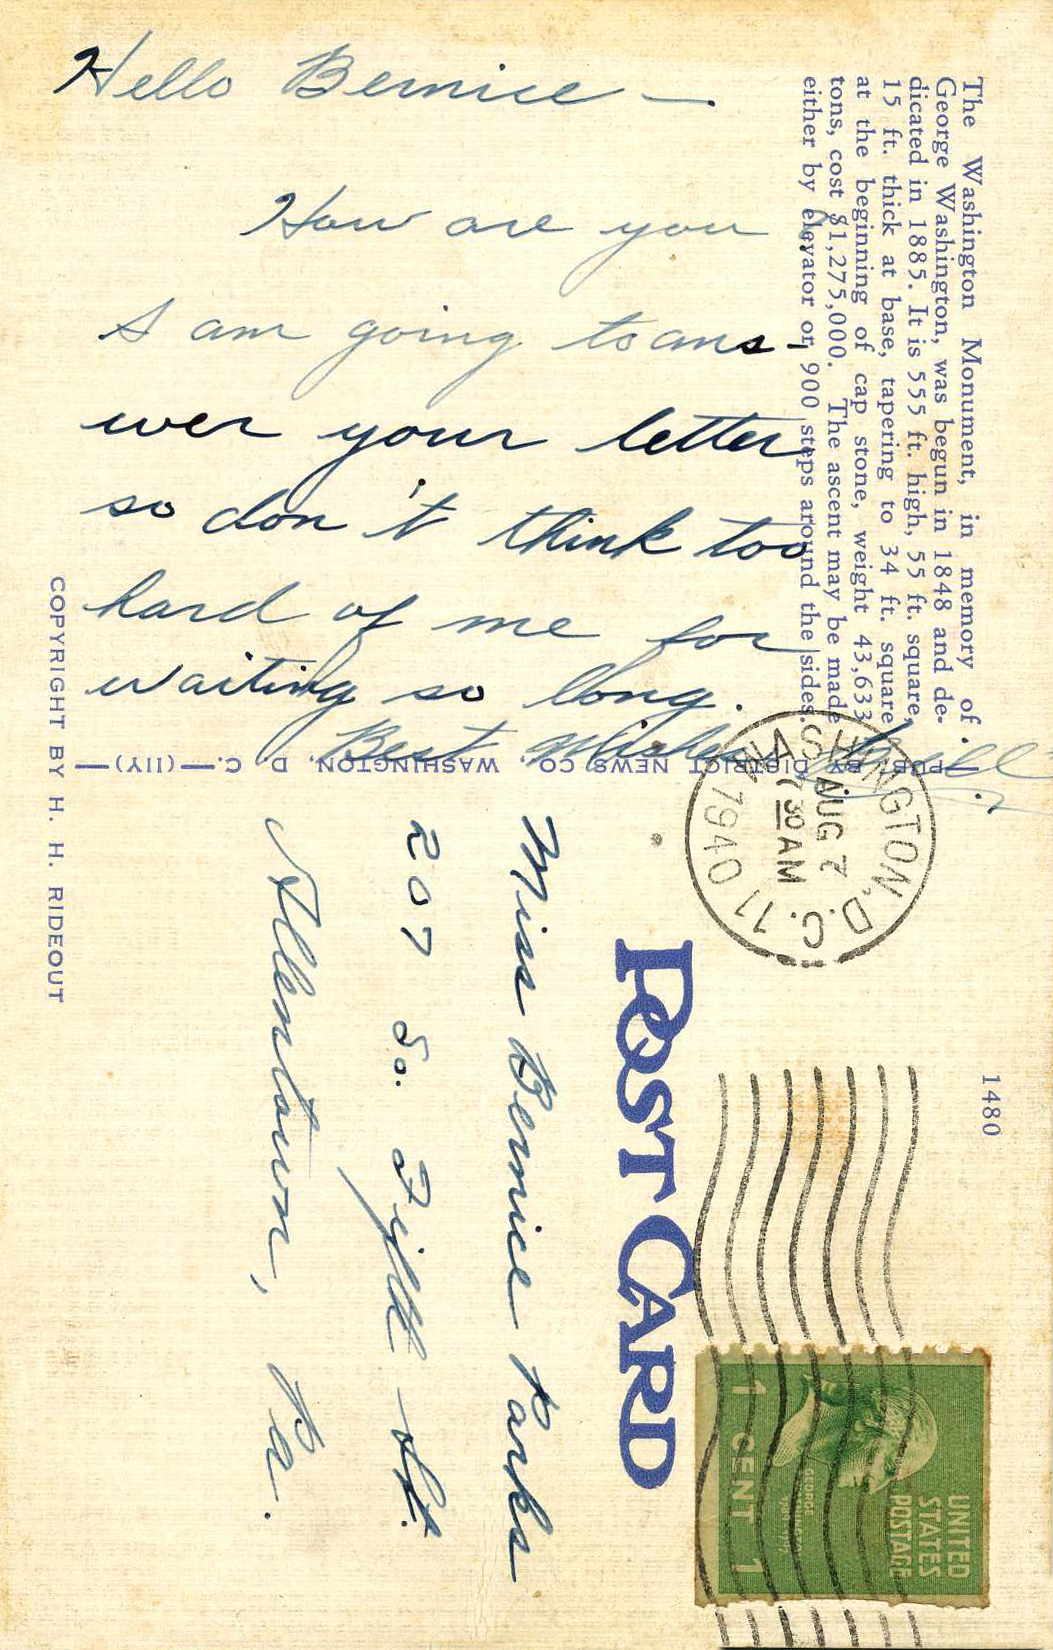 Hello Bernice —
How are you?
I am going to ans-
wer your letter
so don't think too
hard of me for
waiting so long.
Best Wishes
The Washington Monument, in memory of
George Washington, was begun in 1848 and de-
dicated in 1885. It is 555 ft. high, 55 ft. square,
15 ft. thick at base, tapering to 34 ft. square
at the beginning of cap stone, weight 43,633
tons, cost $1,275,000. The ascent may be made
either by elevator or 900 steps around the sides.
PUB. BY DISTRICT NEWS CO., WASHINGTON, D. C.—(11Y)—
COPYRIGHT BY H. H. RIDEOUT
WASHINGTON, D.C. 11
AUG 7
7 30 AM
1940
1480
POST CARD
UNITED
STATES
POSTAGE
GEORGE
WASHINGTON
1 CENT 1
Miss Bernice Parks
207 So. Fifth St.
Allentown, Pa.